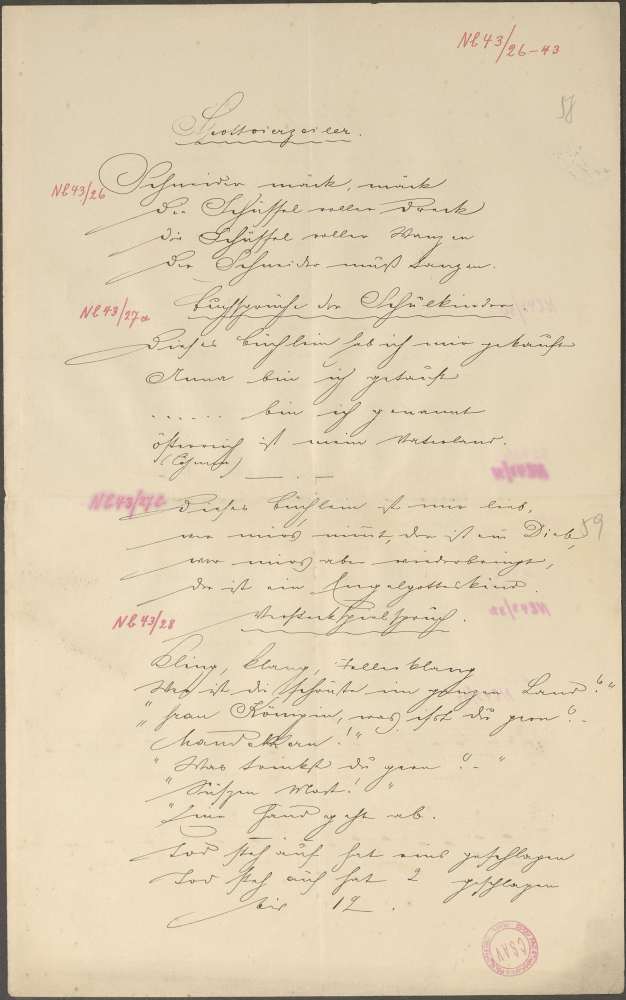 Nl 43/26-43
58
Spottvierzeiler.
Nl 43/26
Schneider mäck, mäck
Die Schüssel voller Dreck
die Schüssel voller Wanzen
Der Schneider muß tanzen.
Nl 43/27a
Buchsprüche der Schulkinder
Dieses Büchlein hab ich mir gekauft
Anna bin ich getauft
...... bin ich genannt
Österreich ist mein Vaterland.
Nl 43/27b
Dieses Büchlein ist mir lieb,
wer mirs nimmt, der ist ein Dieb,
59
wer mirs aber wiederbringt,
der ist ein Engelgotteskind.
Nl 43/28
Versteckspielspruch.
Kling, klang, Tellerklang
Wer ist die schönste im ganzen Land?"
"Frau Königin, was ißt du gern?-
Mandelkern!"
"Was trinkst du gern?-"
"Süßen Most!"
"Eine Hand geht ab.
Tod steh auf hat eins geschlagen
Tod steh auf hat 2 geschlagen
bis 12.
ČSAV